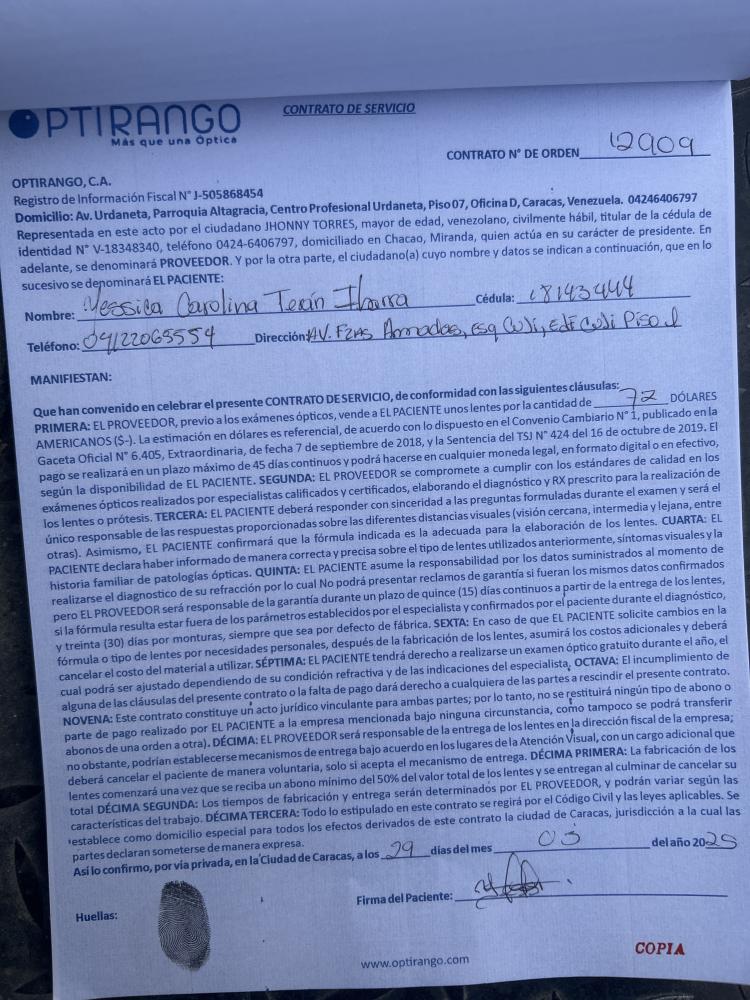 OPTIRANGO
Más que una Óptica
CONTRATO DE SERVICIO
CONTRATO N° DE ORDEN 12909
OPTIRANGO, C.A.
Registro de Información Fiscal N° J-505868454
Domicilio: Av. Urdaneta, Parroquia Altagracia, Centro Profesional Urdaneta, Piso 07, Oficina D, Caracas, Venezuela. 04246406797
Representada en este acto por el ciudadano JHONNY TORRES, mayor de edad, venezolano, civilmente hábil, titular de la cédula de
identidad N° V-18348340, teléfono 0424-6406797, domiciliado en Chacao, Miranda, quien actúa en su carácter de presidente. En
adelante, se denominará PROVEEDOR. Y por la otra parte, el ciudadano(a) cuyo nombre y datos se indican a continuación, que en lo
sucesivo se denominará EL PACIENTE:
Nombre: Yessica Carolina Terán Ibarra Cédula: 18143444
Teléfono: 04122065554 Dirección: AV. Fzas Armadas, esq Cují, Edf Cují Piso 1
MANIFIESTAN:
Que han convenido en celebrar el presente CONTRATO DE SERVICIO, de conformidad con las siguientes cláusulas:
PRIMERA: EL PROVEEDOR, previo a los exámenes ópticos, vende a EL PACIENTE unos lentes por la cantidad de 72 DÓLARES
AMERICANOS ($-). La estimación en dólares es referencial, de acuerdo con lo dispuesto en el Convenio Cambiario N° 1, publicado en la
Gaceta Oficial N° 6.405, Extraordinaria, de fecha 7 de septiembre de 2018, y la Sentencia del TSJ N° 424 del 16 de octubre de 2019. El
pago se realizará en un plazo máximo de 45 días continuos y podrá hacerse en cualquier moneda legal, en formato digital o en efectivo,
según la disponibilidad de EL PACIENTE. SEGUNDA: EL PROVEEDOR se compromete a cumplir con los estándares de calidad en los
exámenes ópticos realizados por especialistas calificados y certificados, elaborando el diagnóstico y RX prescrito para la realización de
los lentes o prótesis. TERCERA: EL PACIENTE deberá responder con sinceridad a las preguntas formuladas durante el examen y será el
único responsable de las respuestas proporcionadas sobre las diferentes distancias visuales (visión cercana, intermedia y lejana, entre
otras). Asimismo, EL PACIENTE confirmará que la fórmula indicada es la adecuada para la elaboración de los lentes. CUARTA: EL
PACIENTE declara haber informado de manera correcta y precisa sobre el tipo de lentes utilizados anteriormente, síntomas visuales y la
historia familiar de patologías ópticas. QUINTA: EL PACIENTE asume la responsabilidad por los datos suministrados al momento de
realizarse el diagnostico de su refracción por lo cual No podrá presentar reclamos de garantía si fueran los mismos datos confirmados
pero EL PROVEEDOR será responsable de la garantía durante un plazo de quince (15) días continuos a partir de la entrega de los lentes,
si la fórmula resulta estar fuera de los parámetros establecidos por el especialista y confirmados por el paciente durante el diagnóstico,
y treinta (30) días por monturas, siempre que sea por defecto de fábrica. SEXTA: En caso de que EL PACIENTE solicite cambios en la
fórmula o tipo de lentes por necesidades personales, después de la fabricación de los lentes, asumirá los costos adicionales y deberá
cancelar el costo del material a utilizar. SÉPTIMA: EL PACIENTE tendrá derecho a realizarse un examen óptico gratuito durante el año, el
cual podrá ser ajustado dependiendo de su condición refractiva y de las indicaciones del especialista, OCTAVA: El incumplimiento de
alguna de las cláusulas del presente contrato o la falta de pago dará derecho a cualquiera de las partes a rescindir el presente contrato.
NOVENA: Este contrato constituye un acto jurídico vinculante para ambas partes; por lo tanto, no se restituirá ningún tipo de abono o
parte de pago realizado por EL PACIENTE a la empresa mencionada bajo ninguna circunstancia, como tampoco se podrá transferir
abonos de una orden a otra). DÉCIMA: EL PROVEEDOR será responsable de la entrega de los lentes en la dirección fiscal de la empresa;
no obstante, podrían establecerse mecanismos de entrega bajo acuerdo en los lugares de la Atención Visual, con un cargo adicional que
deberá cancelar el paciente de manera voluntaria, solo si acepta el mecanismo de entrega. DÉCIMA PRIMERA: La fabricación de los
lentes comenzará una vez que se reciba un abono mínimo del 50% del valor total de los lentes y se entregan al culminar de cancelar su
total DÉCIMA SEGUNDA: Los tiempos de fabricación y entrega serán determinados por EL PROVEEDOR, y podrán variar según las
características del trabajo. DÉCIMA TERCERA: Todo lo estipulado en este contrato se regirá por el Código Civil y las leyes aplicables. Se
establece como domicilio especial para todos los efectos derivados de este contrato la ciudad de Caracas, jurisdicción a la cual las
partes declaran someterse de manera expresa.
Así lo confirmo, por vía privada, en la Ciudad de Caracas, a los 29 días del mes 03 del año 2025
Huellas:
Firma del Paciente:
www.optirango.com
COPIA